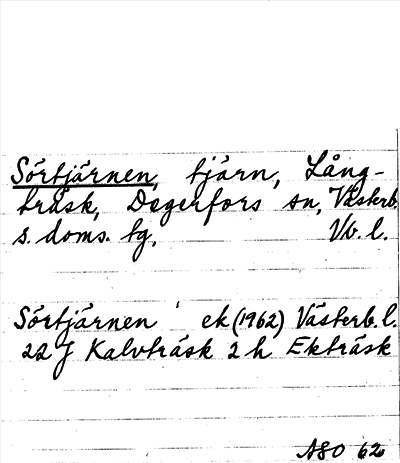 Sörtjärnen, tjärn, Lång-
träsk, Degerfors sn, Västerb.
s. doms. tg, Vb. l.
Sörtjärnen ek (1962) Västerb. l.
22 J Kalvträsk 2 h Ekträsk
ASO 62